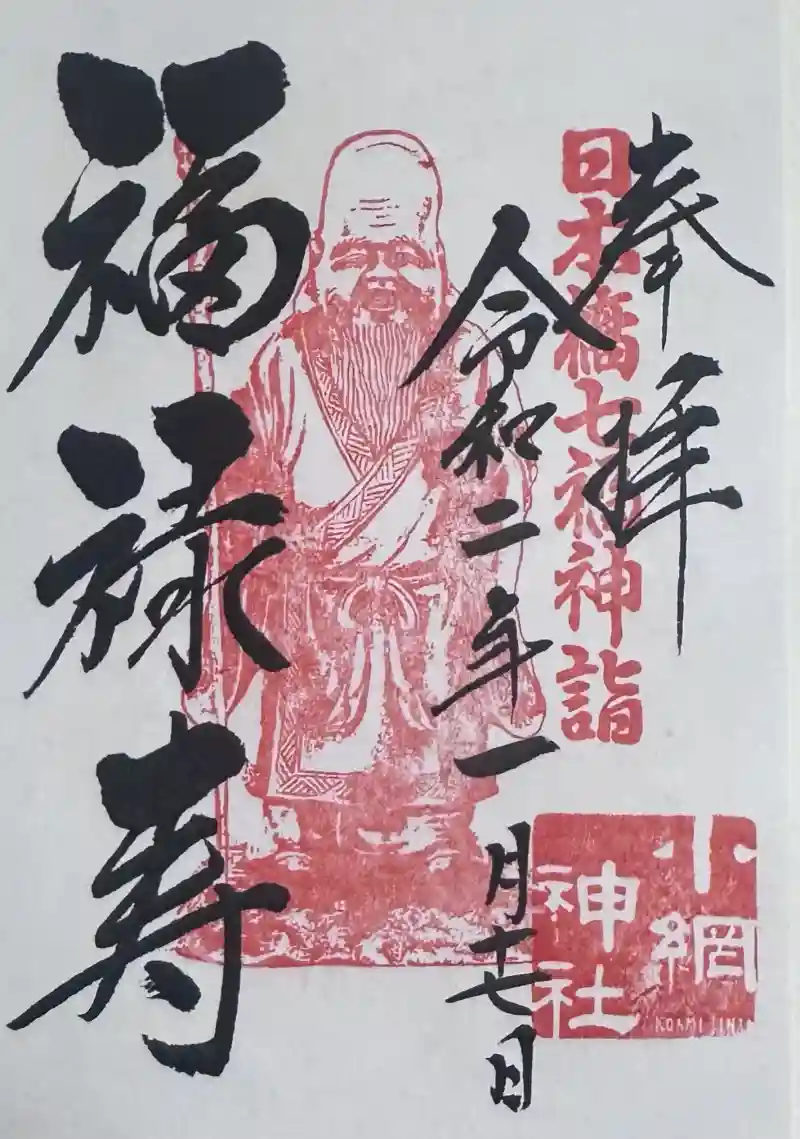 奉拝
日本橋七福神詣
令和二年一月十七日
福禄寿
小網
神社
KOAMI JINJA